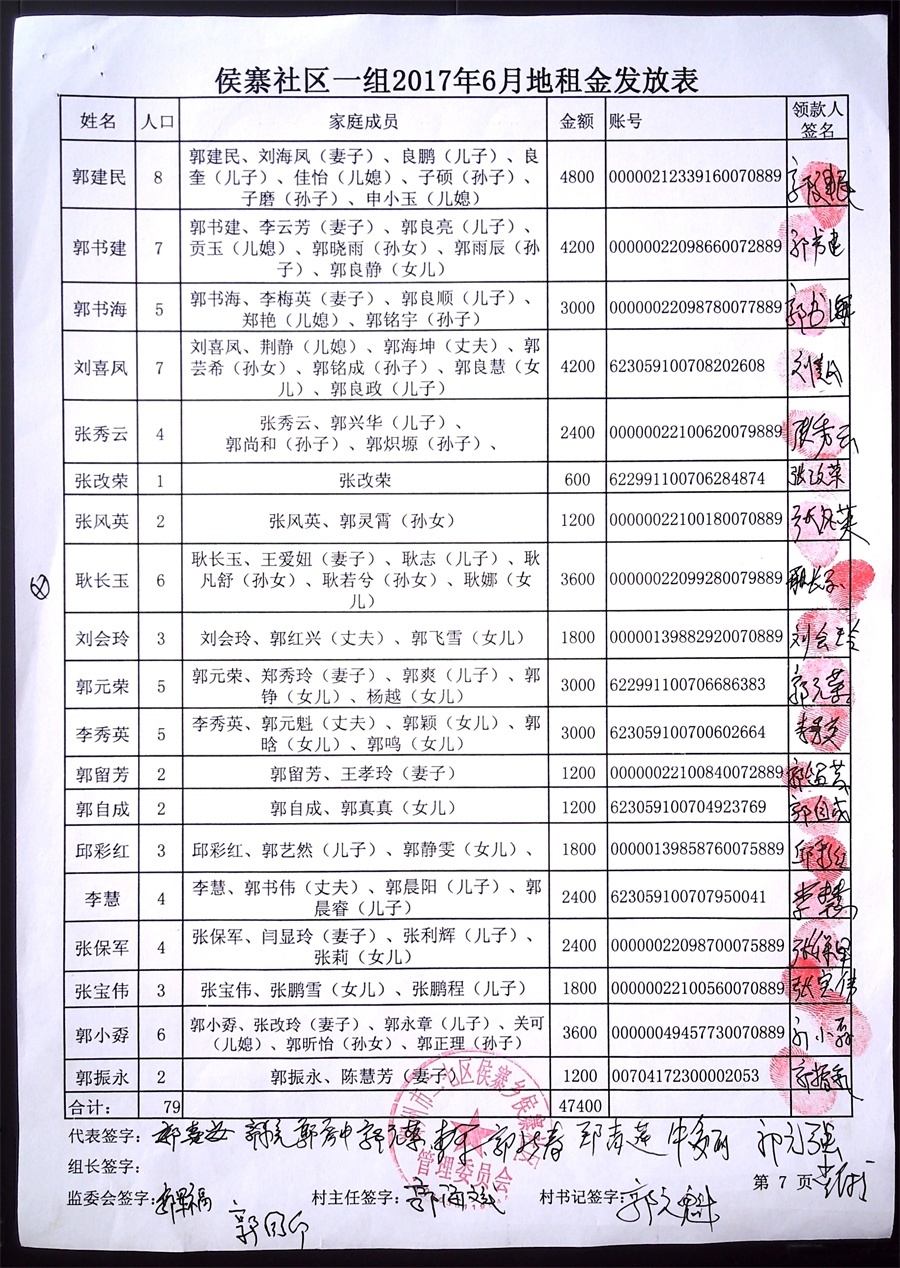 侯寨社区一组2017年6月地租金发放表
姓名 人口 家庭成员 金额 账号 领款人
签名
郭建民、刘海凤（妻子）、良鹏（儿子）、良
郭建民 8 奎（儿子）、佳怡（儿媳）、子硕（孙子）、 4800 00000212339160070889
子磨（孙子）、申小玉（儿媳）
郭书建、李云芳（妻子）、郭良亮（儿子）、
郭书建 7 贡玉（儿媳）、郭晓雨（孙女）、郭雨辰（孙 4200 00000022098660072889 郭书建
子）、郭良静（女儿）
郭书海 5 郭书海、李梅英（妻子）、郭良顺（儿子）、 3000 00000022098780077889 郭书海
郑艳（儿媳）、郭铭宇（孙子）
刘喜凤、荆静（儿媳）、郭海坤（丈夫）、郭
刘喜凤 7 芸希（孙女）、郭铭成（孙子）、郭良慧（女 4200 623059100708202608
儿）、郭良政（儿子）
张秀云 4 张秀云、郭兴华（儿子）、 2400 00000022100620079889 张秀云
郭尚和（孙子）、郭炽塬（孙子）、
张改荣 1 张改荣 600 622991100706284874 张改荣
张风英 2 张风英、郭灵霄（孙女） 1200 00000022100180070889 张风英
耿长玉、王爱妞（妻子）、耿志（儿子）、耿
耿长玉 6 凡舒（孙女）、耿若兮（孙女）、耿娜（女 3600 00000022099280079889 耿长玉
儿）
刘会玲 3 刘会玲、郭红兴（丈夫）、郭飞雪（女儿） 1800 00000139882920070889 刘会玲
郭元荣 5 郭元荣、郑秀玲（妻子）、郭爽（儿子）、郭 3000 622991100706686383 郭元荣
铮（女儿）、杨越（女儿）
李秀英 5 李秀英、郭元魁（丈夫）、郭颖（女儿）、郭 3000 623059100700602664 李秀英
晗（女儿）、郭鸣（女儿）
郭留芳 2 郭留芳、王孝玲（妻子） 1200 00000022100840072889 郭留芳
郭自成 2 郭自成、郭真真（女儿） 1200 623059100704923769 郭自成
邱彩红 3 邱彩红、郭艺然（儿子）、郭静雯（女儿）、 1800 00000139858760075889 邱彩红
李慧 4 李慧、郭书伟（丈夫）、郭晨阳（儿子）、郭 2400 623059100707950041 李慧
晨睿（儿子）
张保军 4 张保军、闫显玲（妻子）、张利辉（儿子）、 2400 00000022098700075889 张保军
张莉（女儿）
张宝伟 3 张宝伟、张鹏雪（女儿）、张鹏程（儿子） 1800 00000022100560070889 张宝伟
郭小孬 6 郭小孬、张改玲（妻子）、郭永章（儿子）、关可 3600 00000049457730070889
（儿媳）、郭昕怡（孙女）、郭正理（孙子）
郭振永 2 郭振永、陈慧芳（妻子） 1200 00704172300002053
合计： 79 47400
代表签字：
组长签字：
第 7 页
监委会签字： 村主任签字： 村书记签字：郭元魁
管理委员会